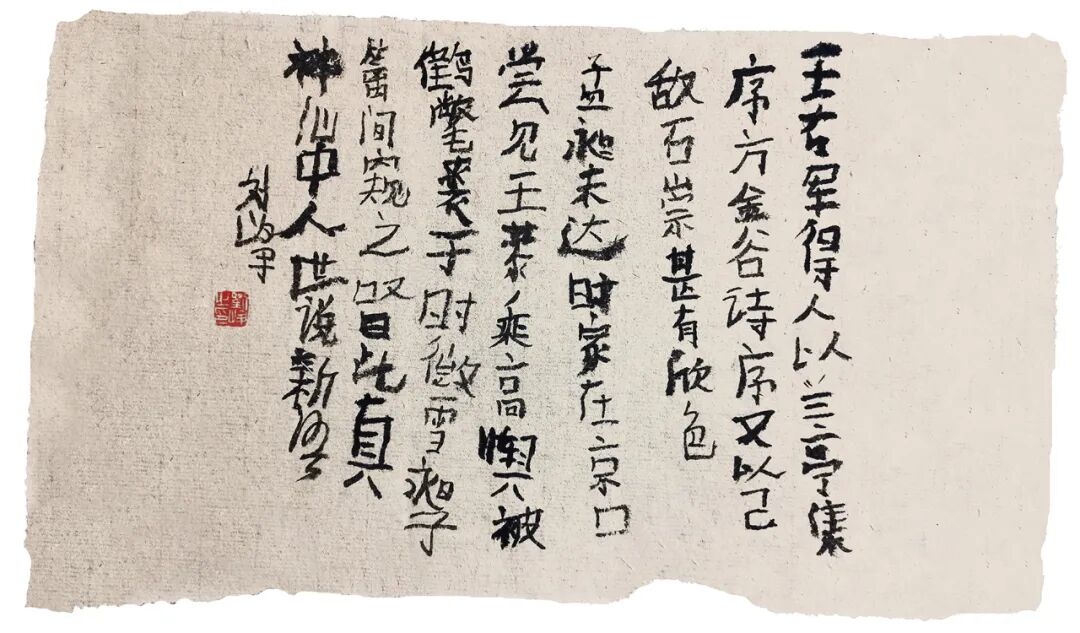 王右军得人以兰亭集
序方金谷诗序又以己
敌石崇甚有欣色
孟昶未达时家在京口
尝见王恭乘高舆被
鹤氅裘于时微雪昶于
篱间窥之叹曰此真
神仙中人世说新语
刘峥